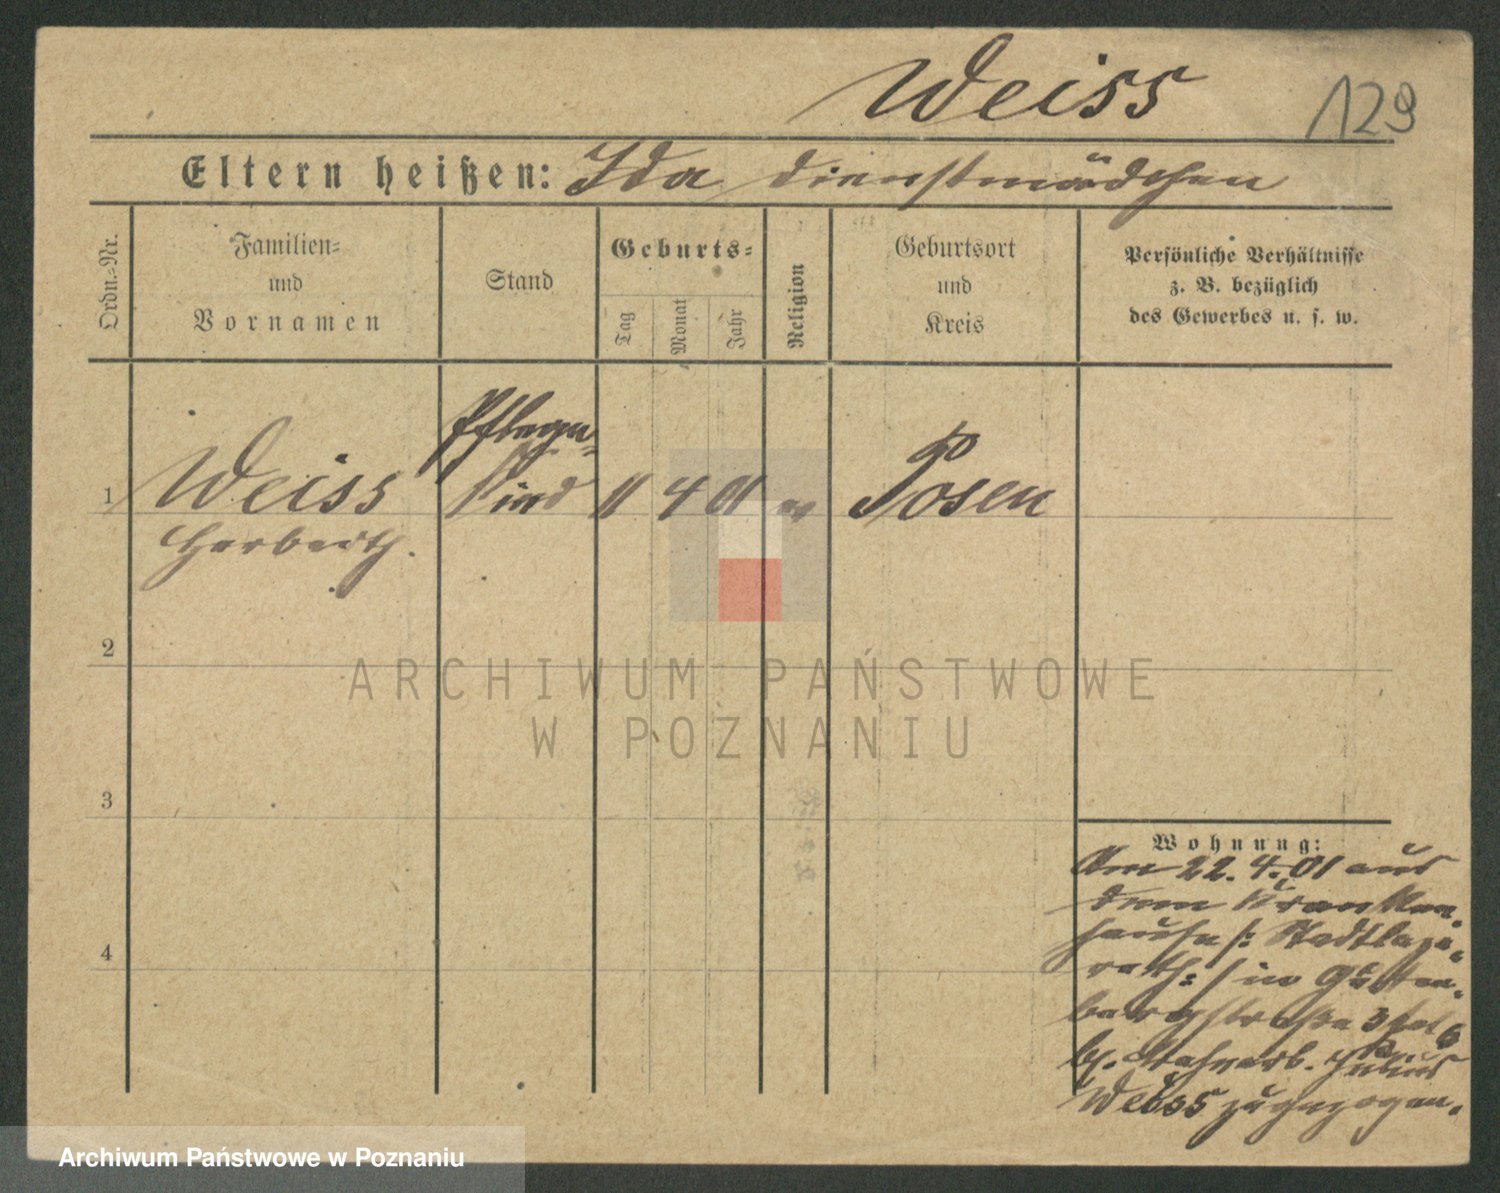 Weiss
129
Eltern heißen: Ida Dienstmädchen
Ordn.=Nr.
Familien=
und
Vornamen
Stand
Geburts=
Tag
Monat
Jahr
Religion
Geburtsort
und
Kreis
Persönliche Verhältnisse
z. B. bezüglich
des Gewerbes u. s. w.
Pflege=
1 Weiss Kind 11 4 01 ev Posen
Herberth.
2
3
4
ARCHIWUM PAŃSTWOWE
W POZNANIU
Wohnung:
Am 22.4.01 aus
dem Kranken=
hause /: Stadtlaza=
reth :/ in
3
b. Julius
Weiss zugezogen.
Archiwum Państwowe w Poznaniu